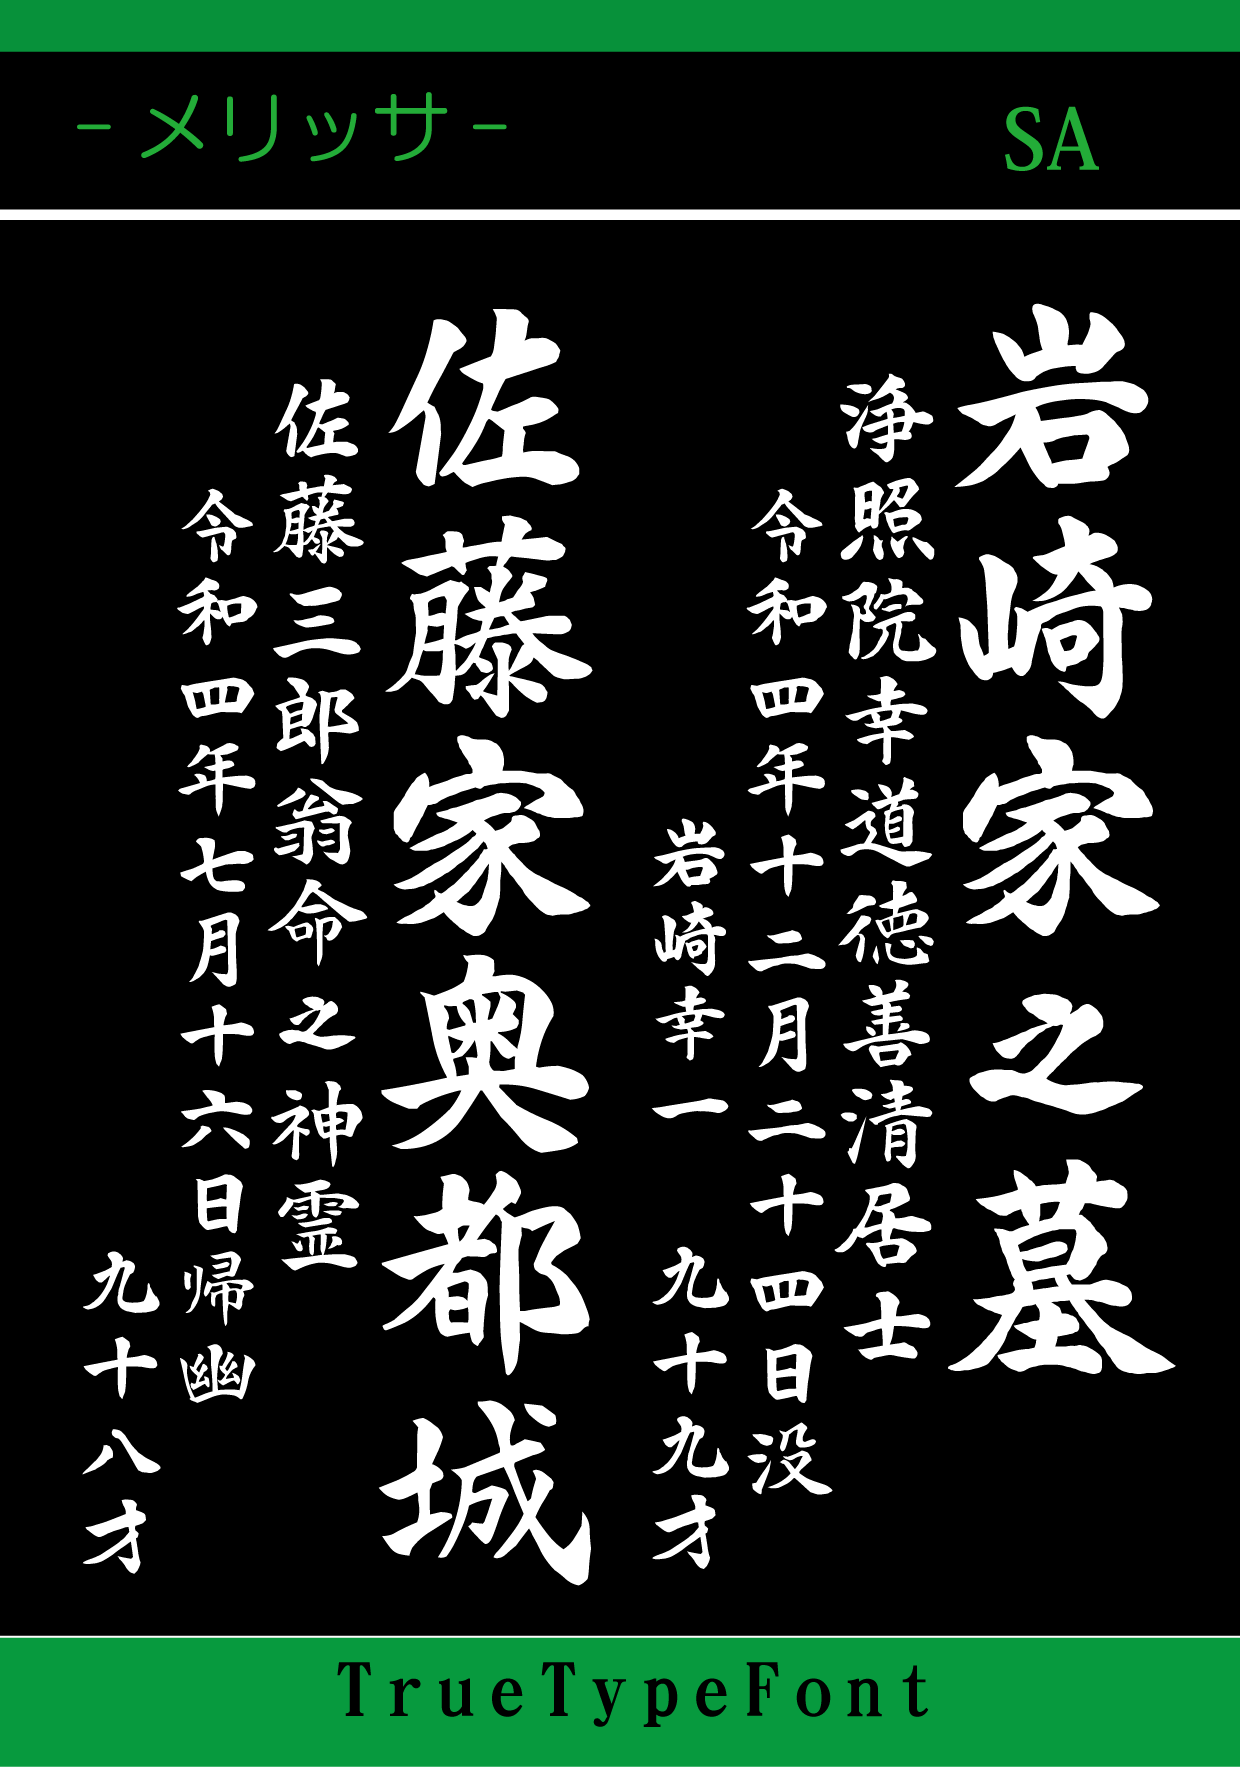 -メリッサ-
SA
岩崎家之墓
浄照院幸道徳善清居士
令和四年十二月二十四日没
岩崎幸一 九十九才
佐藤家奥都城
佐藤三郎翁命之神霊
令和四年七月十六日帰幽
九十八才
TrueTypeFont